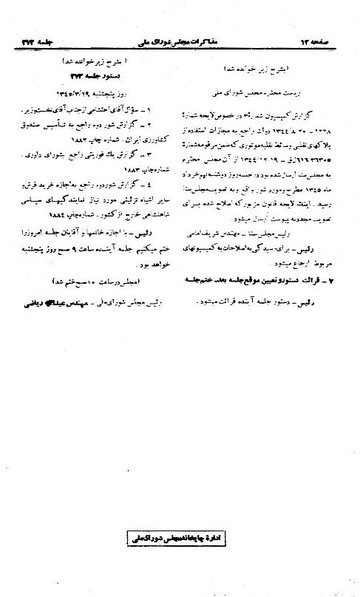 صفحه ۱۲
مذاکرات مجلس شورای ملی
جلسه ۲۷۳
(بشرح زیر خوانده شد)
ریاست محترم مجلس شورای ملی
گزارش کمیسیون شماره
۱۲۲۸ - ۲۰ - ۸ - ۱۳۴۴ دولت راجع به مجازات استفاده از
پلاکهای تقلبی وسائط نقلیه موتوری که ضمن مرقومه شماره
از آن مجلس محترم
به مجلس سنا ارسال شده بود در جلسه روز دوشنبه نهم خرداد
ماه ۱۳۴۵ مطرح و مورد شور واقع و به تصویب مجلس سنا
رسید. اینك لایحه قانون مزبور که اصلاح شده برای
تصویب مجدد به پیوست ارسال میشود.
رئیس مجلس سنا - مهندس شریف امامی
رئیس - برای رسیدگی به اصلاحات به کمیسیونهای
مربوط ارجاع میشود.
۷ - قرائت دستور و تعیین موقع جلسه بعد - ختم جلسه
رئیس - دستور جلسه آینده قرائت میشود.
(بشرح زیر خوانده شد)
دستور جلسه ۲۷۳
روز پنجشنبه ۱۳۴۵/۳/۱۹
۱ - سؤال آقای احتشامی از جناب آقای نخست‌وزیر.
۲ - گزارش شور دوم راجع به تأسیس صندوق
کشاورزی ایران - شماره چاپ ۱۸۸۲
۳ - گزارش یك فوریتی راجع بشورای داوری.
شماره چاپ ۱۸۸۳
۴ - گزارش شور دوم راجع به اجازه خرید فرش و
سایر اشیاء تزئینی مورد نیاز نمایندگیهای سیاسی
شاهنشاهی خارج از کشور. شماره چاپ ۱۸۸۴
رئیس - با اجازه خانمها و آقایان جلسه امروز را
ختم میکنیم جلسه آینده ساعت ۹ صبح روز پنجشنبه
خواهد بود.
(مجلس در ساعت ۱۰ صبح ختم شد)
رئیس مجلس شورای ملی - مهندس عبدالله ریاضی
اداره چاپخانه مجلس شورای ملی